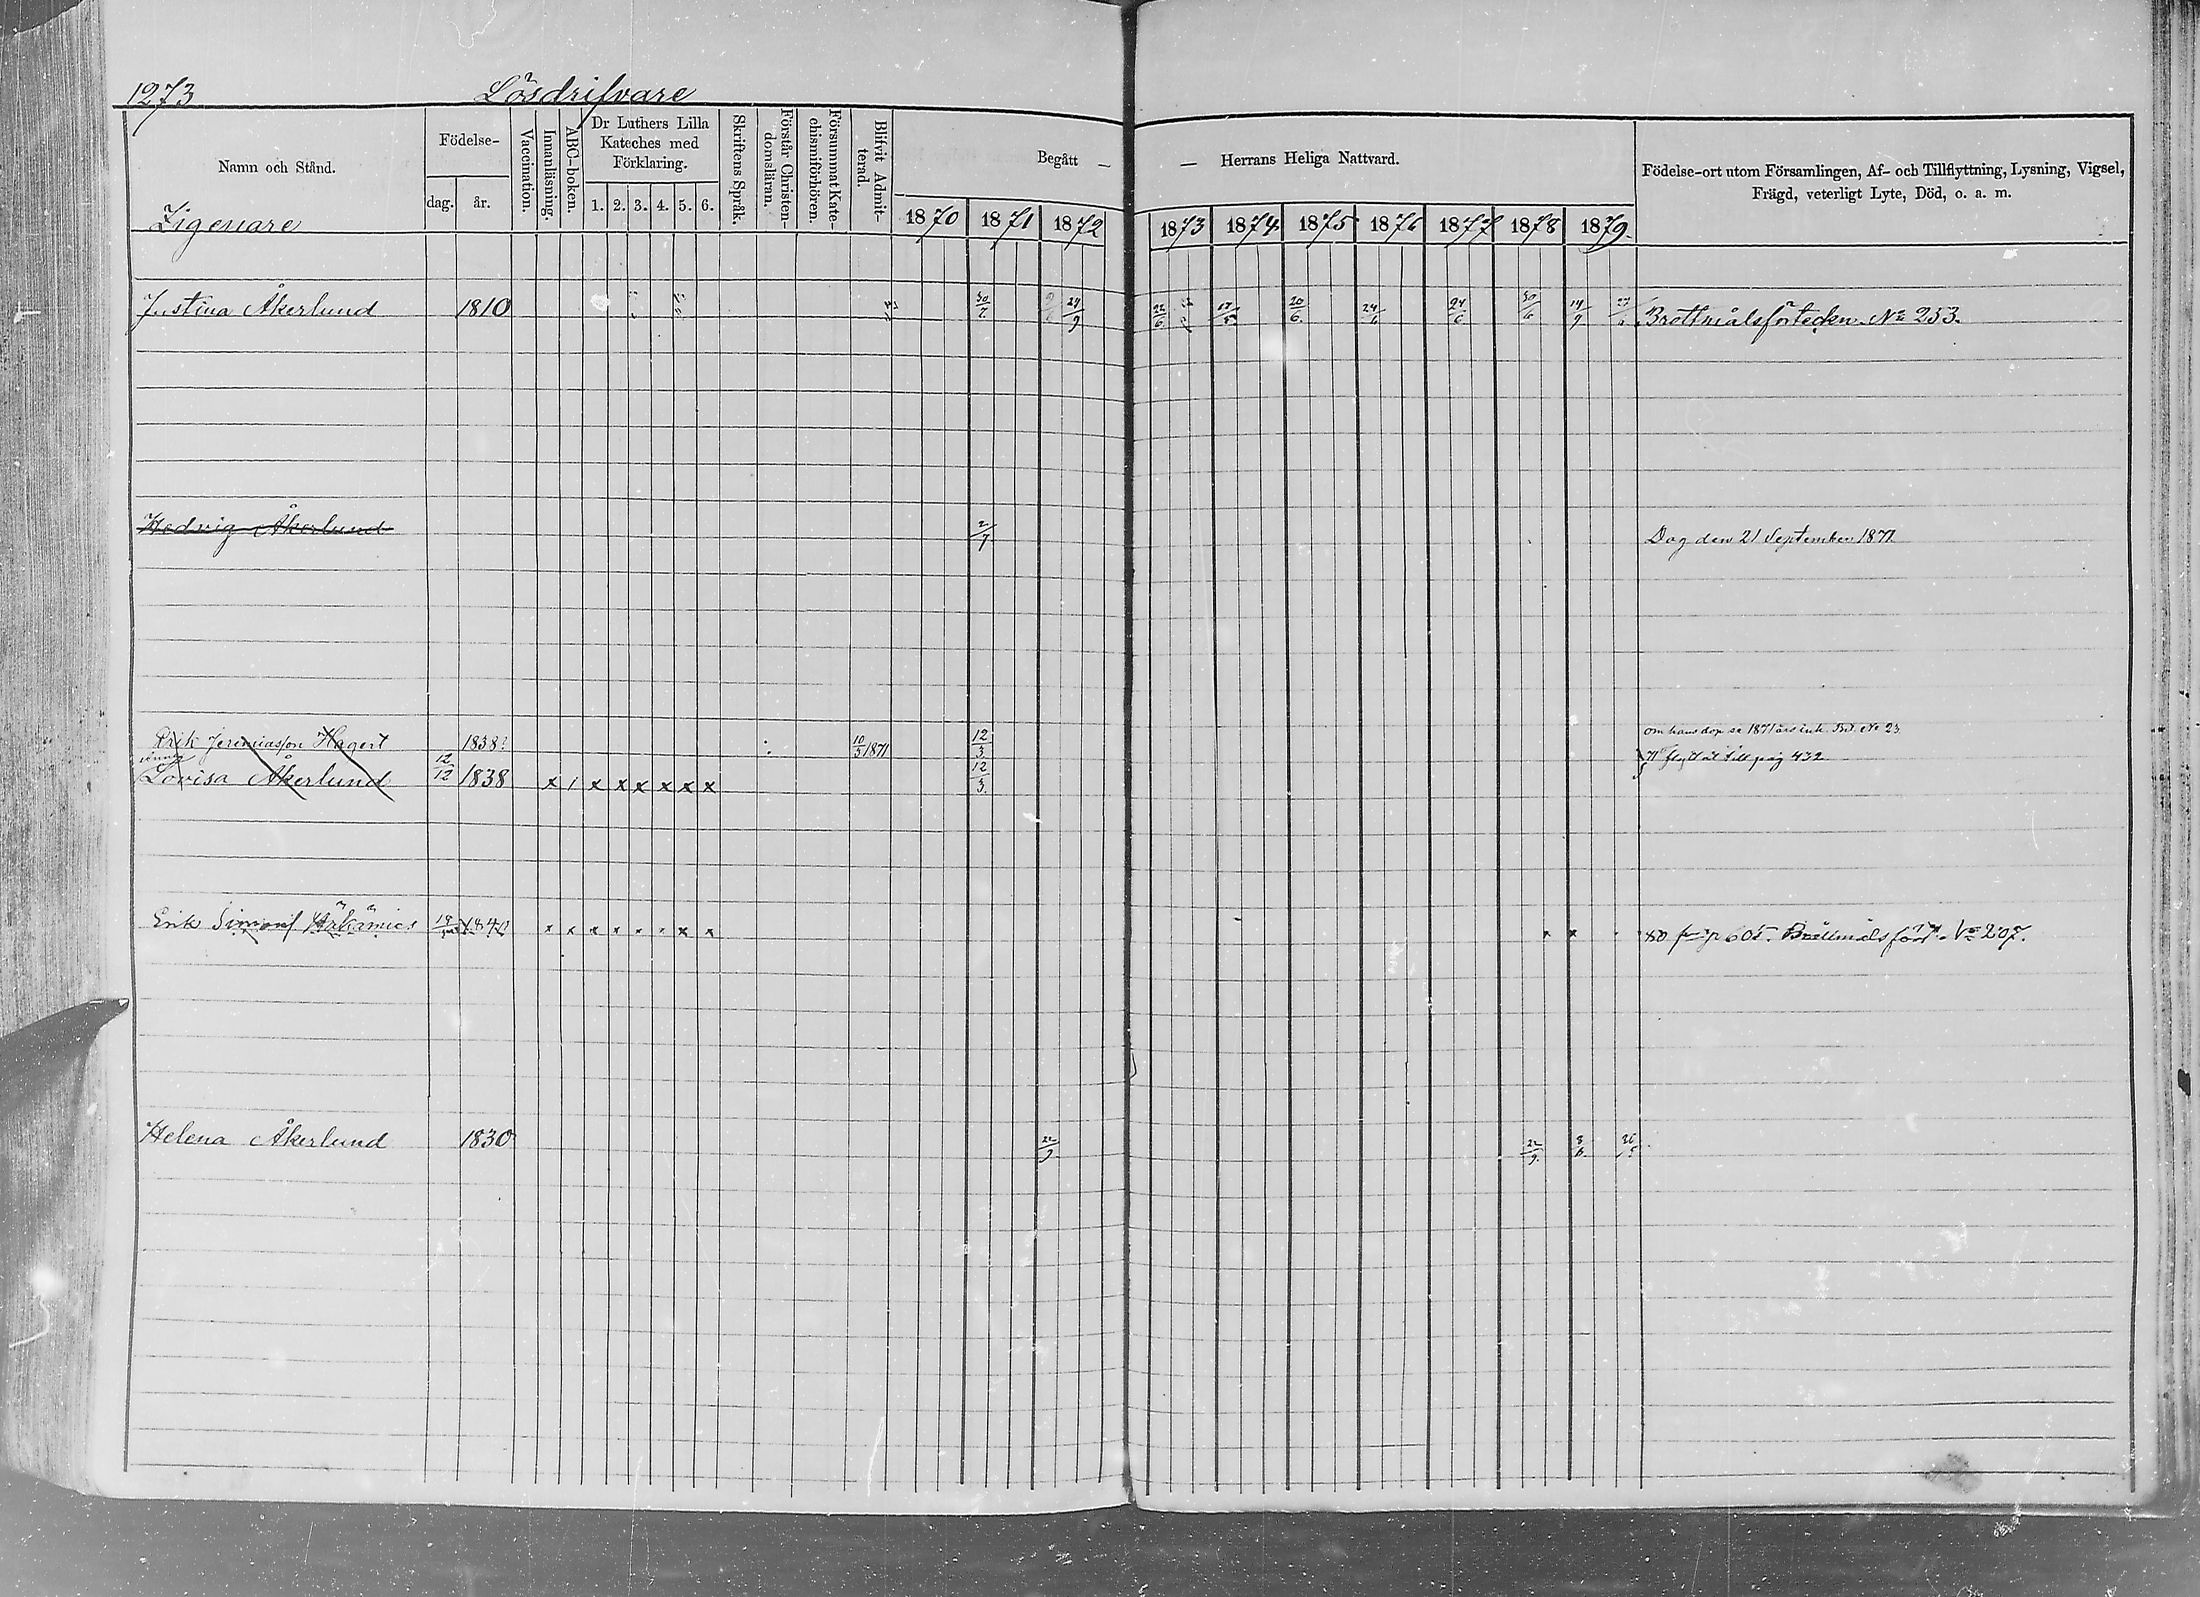 1273 Lösdrifvare
Namn och Stånd.
Födelse-
dag. år.
Vaccination.
Innanläsning.
ABC-boken.
Dr Luthers Lilla
Kateches med
Förklaring.
1. 2. 3. 4. 5. 6.
Skriftens Språk.
Förstår Christen-
domsläran.
Försummat Kate-
chismiförhören.
Blifvit Admit-
terad.
Begått — — Herrans Heliga Nattvard.
1870 1871 1872 1873 1874 1875 1876 1877 1878 1879.
Födelse-ort utom Församlingen, Af- och Tillflyttning, Lysning, Vigsel,
Frägd, veterligt Lyte, Död, o. a. m.
Zigenare
Justina Åkerlund 1810 30/7 24/9 22/6 20/6. 24/6 24/6 30/6 14/9 Brottmålsförteckn. No 233.
Hedvig Åkerlund 2/7 Dog den 21 September 1871.
Erik Jeremiasson Hagert 1838? 10/3 1871 12/3 om hans dop se 1871 års ink. Bd. No 23
Lovisa Åkerlund 12/12 1838 x 1 x x x x x x 12/3. flyttat till pag 432
Erik Simons 1840 x x x x x x x x p 605. Brottmålsfört. No 207.
Helena Åkerlund 1830 22/9. 22/9. 8/6. 26